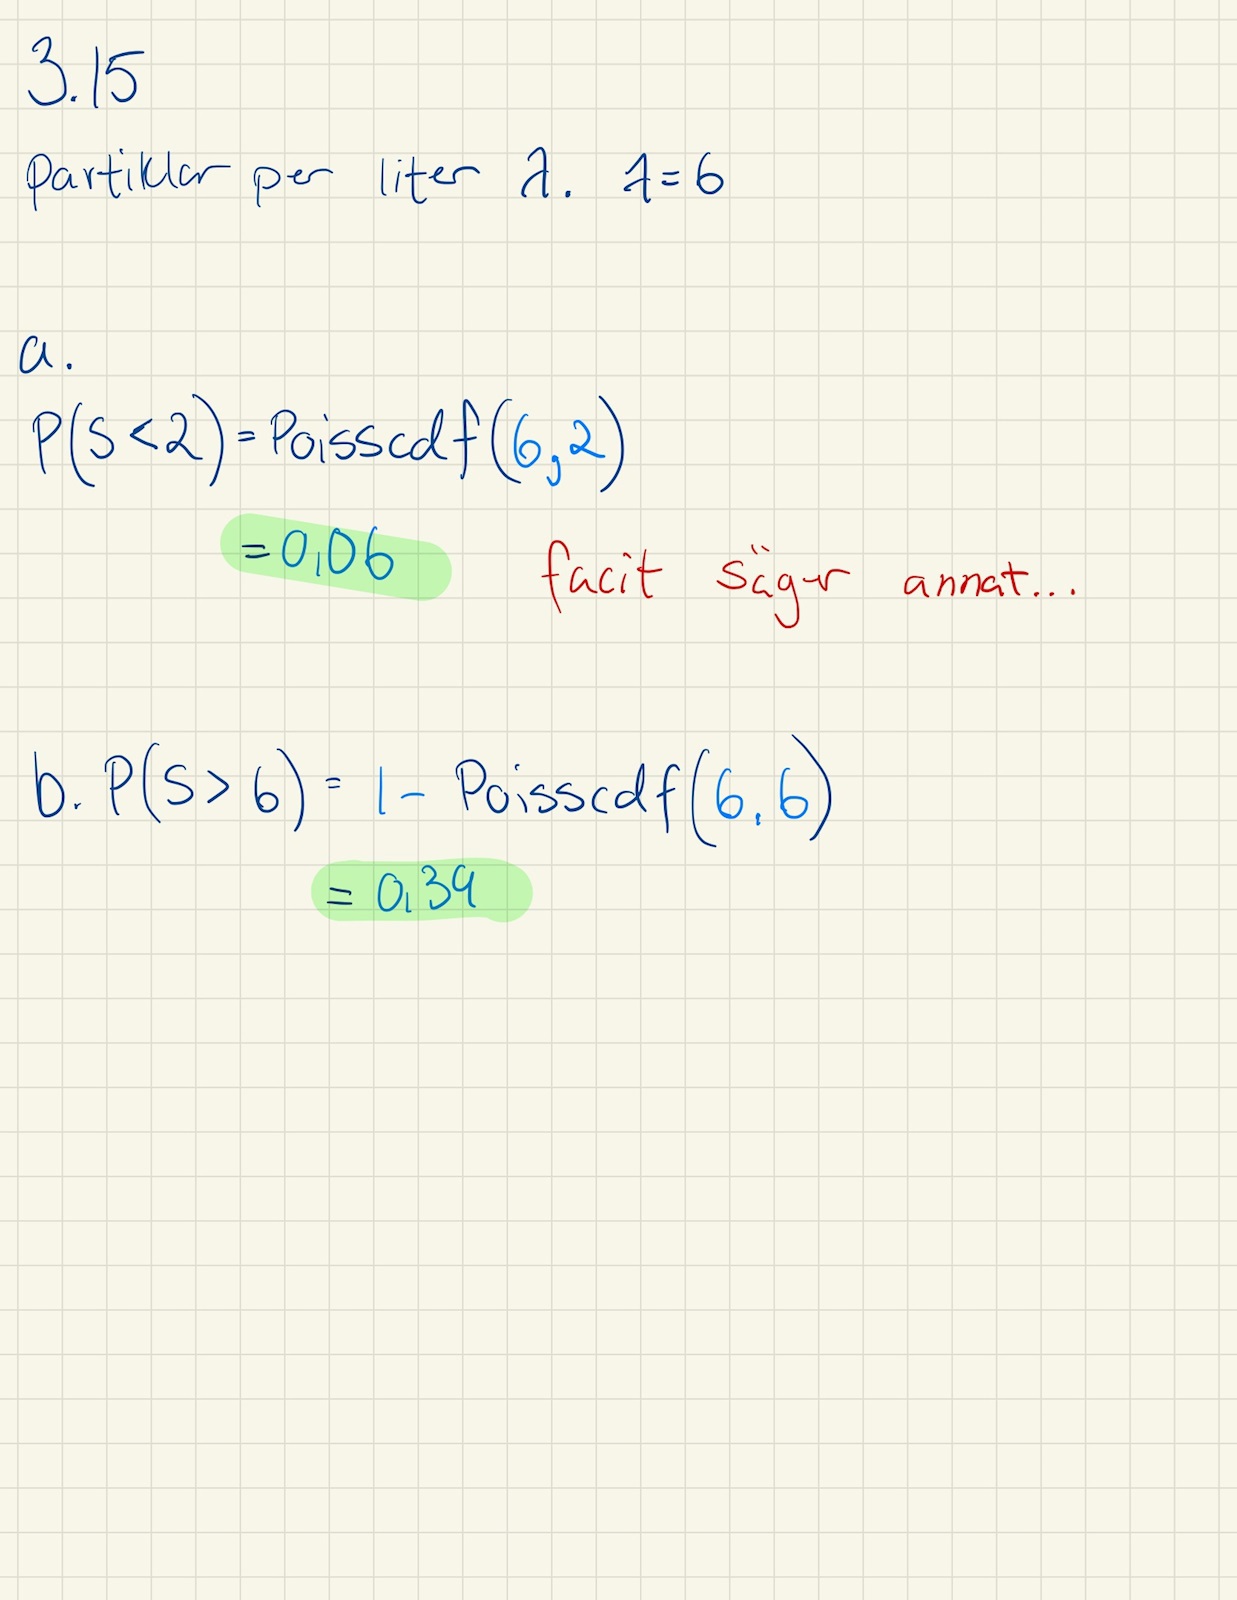 3.15
Partiklar per liter λ. λ=6
a.
P(S<2)=Poisscdf(6,2)
=0,06
facit säger annat...
b. P(S>6) = 1- Poisscdf(6,6)
= 0,39